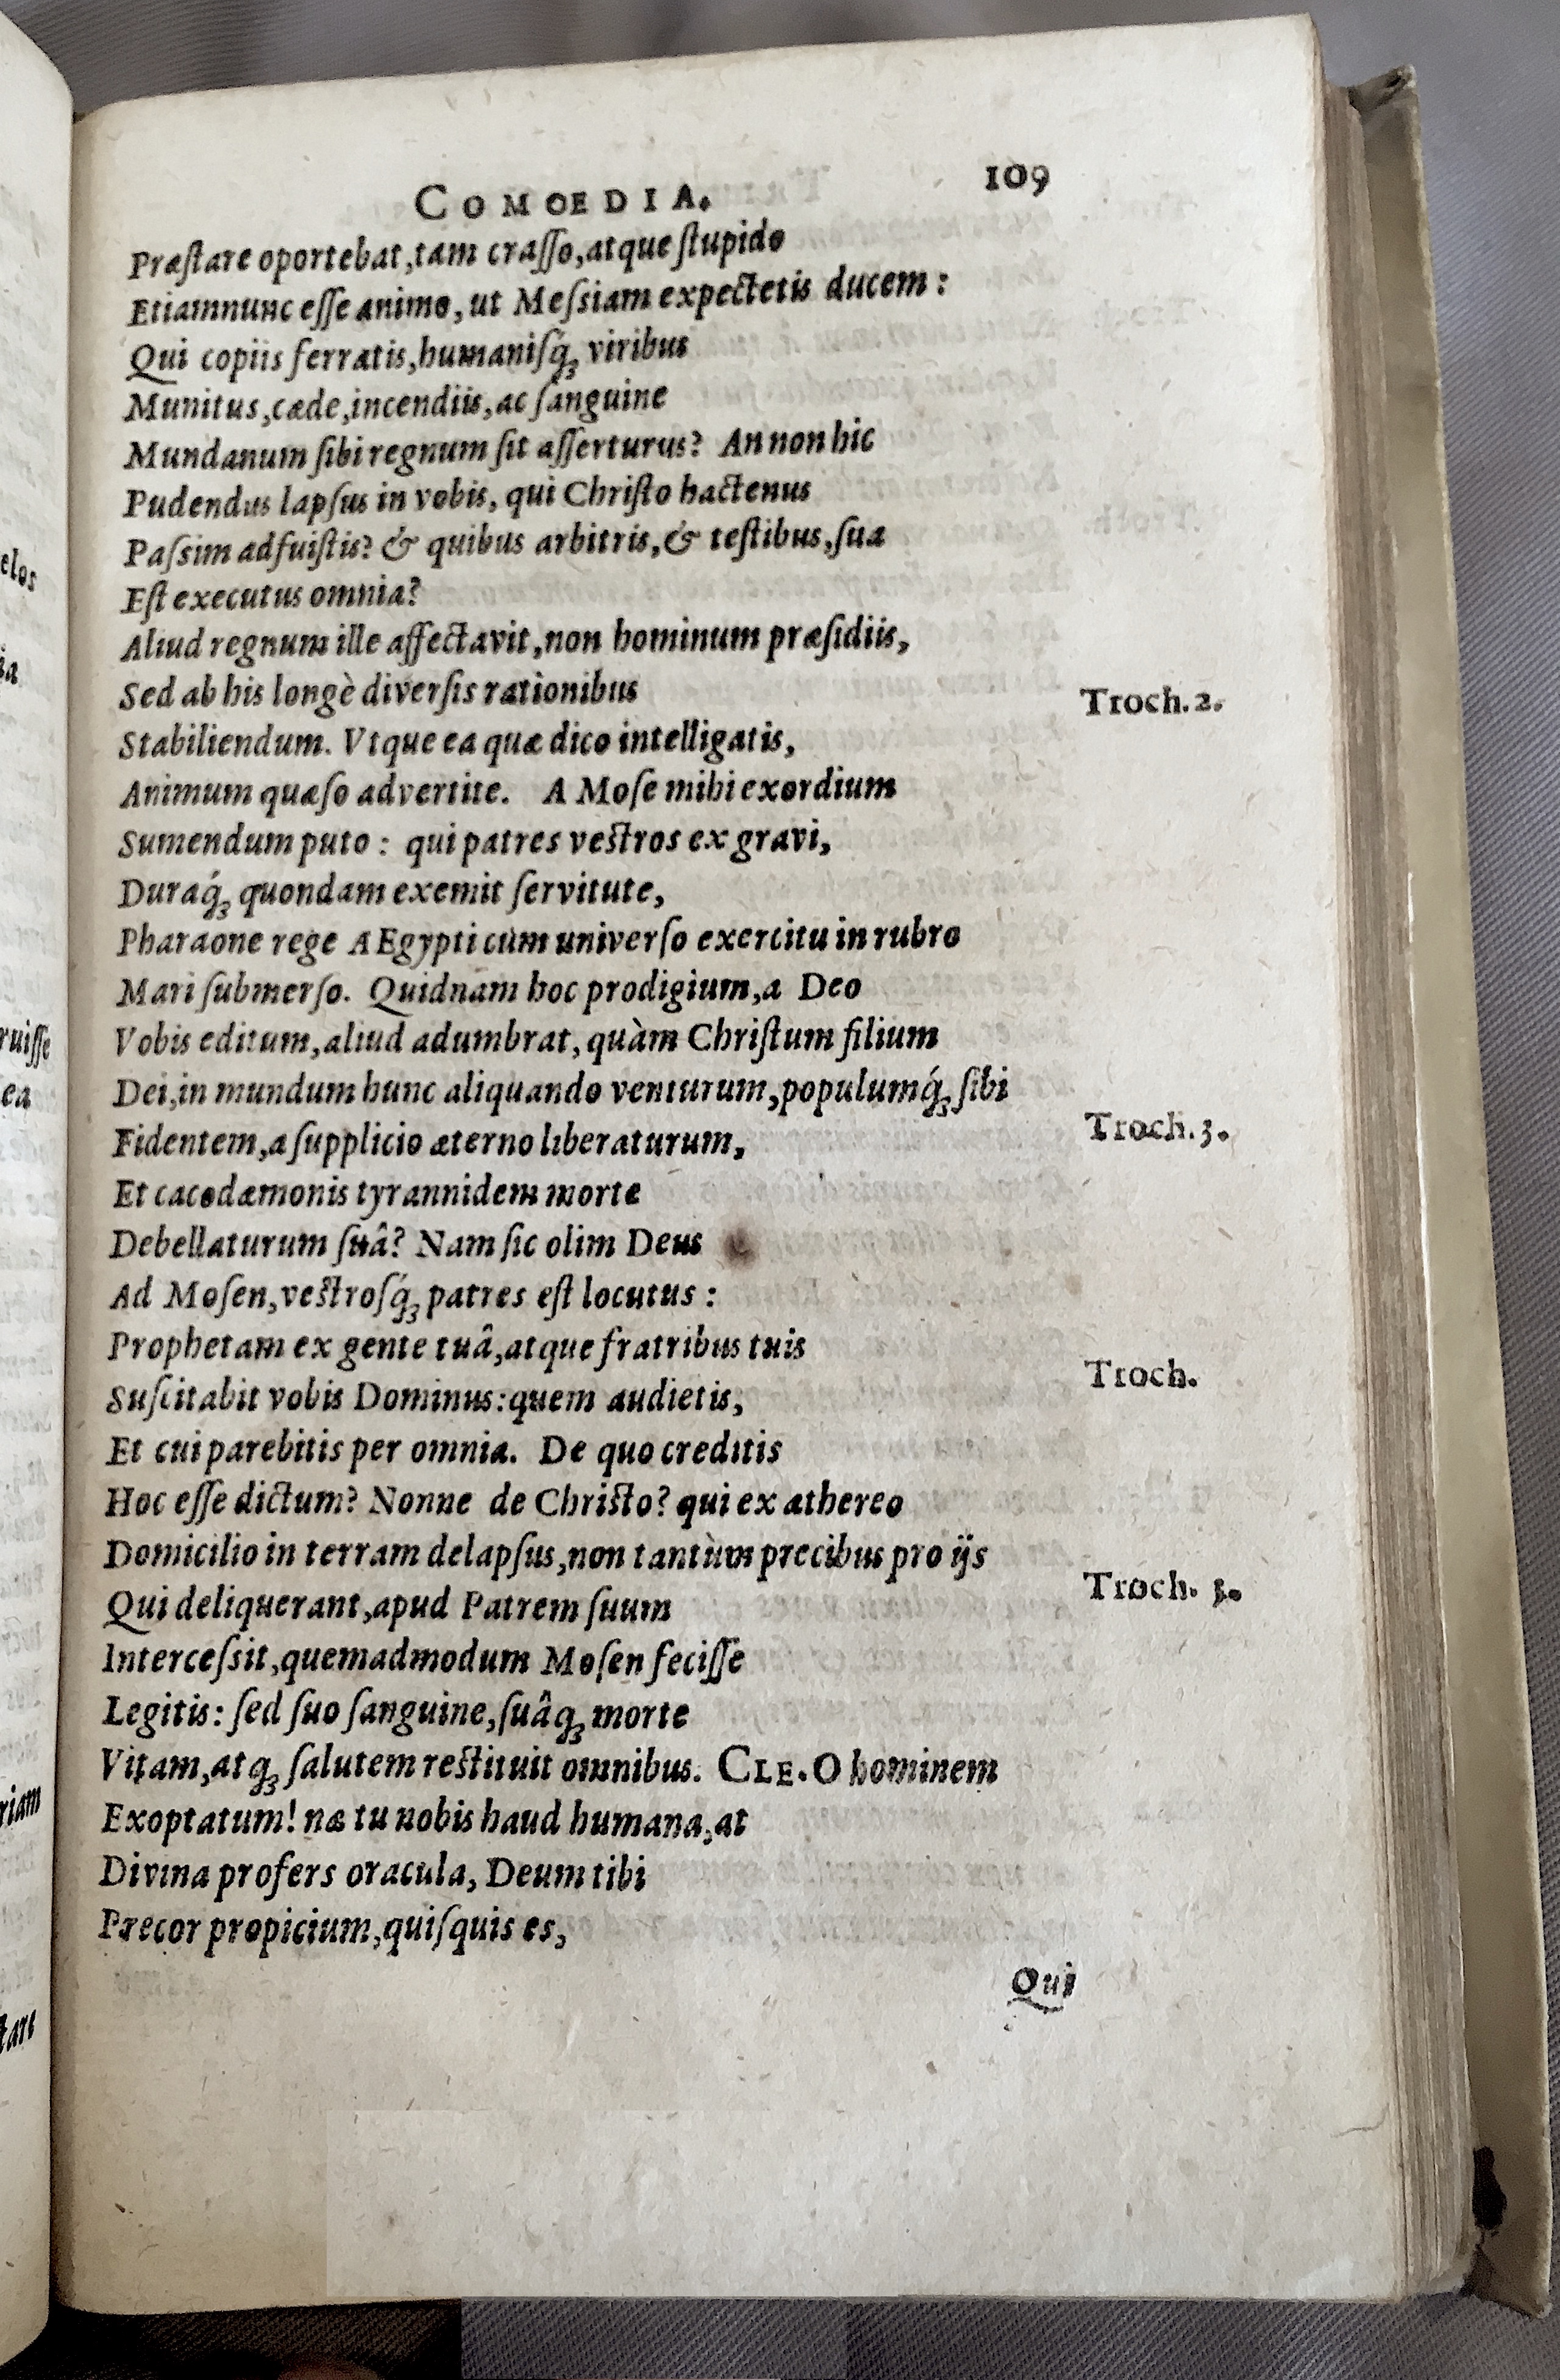 COMOEDIA. 109
Præſtare oportebat, tam craſſo, atque ſtupido
Etiamnunc eſſe animo, ut Meſsiam expectetis ducem:
Qui copiis ferratis, humaniſq́ꝫ viribus
Munitus, cæde, incendiis, ac ſanguine
Mundanum ſibi regnum ſit aſſerturus? An non hic
Pudendus lapſus in vobis, qui Chriſto hactenus
Paſsim adfuiſtis? & quibus arbitris, & teſtibus, ſua
Eſt executus omnia?
Aliud regnum ille affectavit, non hominum præſidiis,
Sed ab his longè diverſis rationibus Troch. 2.
Stabiliendum. Vtque ea quæ dico intelligatis,
Animum quæſo advertite. A Moſe mihi exordium
Sumendum puto: qui patres veſtros ex gravi,
Duraq́ꝫ quondam exemit ſervitute,
Pharaone rege AEgypti cùm univerſo exercitu in rubro
Mari ſubmerſo. Quidnam hoc prodigium, a Deo
Vobis editum, aliud adumbrat, quàm Chriſtum filium
Dei, in mundum hunc aliquando venturum, populumq́ꝫ ſibi
Fidentem, a ſupplicio æterno liberaturum, Troch. 3.
Et cacodæmonis tyrannidem morte
Debellaturum ſuâ? Nam ſic olim Deus
Ad Moſen, veſtroſq́ꝫ patres eſt locutus:
Prophetam ex gente tuâ, atque fratribus tuis
Suſcitabit vobis Dominus: quem audietis, Troch.
Et cui parebitis per omnia. De quo creditis
Hoc eſſe dictum? Nonne de Chriſto? qui ex æthereo
Domicilio in terram delapſus, non tantùm precibus pro ijs
Qui deliquerant, apud Patrem ſuum Troch. 3.
Interceſsit, quemadmodum Moſen feciſſe
Legitis: ſed ſuo ſanguine, ſuâqꝫ morte
Vitam, atqꝫ ſalutem reſtituit omnibus. CLE. O hominem
Exoptatum! næ tu nobis haud humana, at
Divina profers oracula, Deum tibi
Precor propicium, quiſquis es,
Qui
elos
ia
ruiſſe
ea
riam
tare